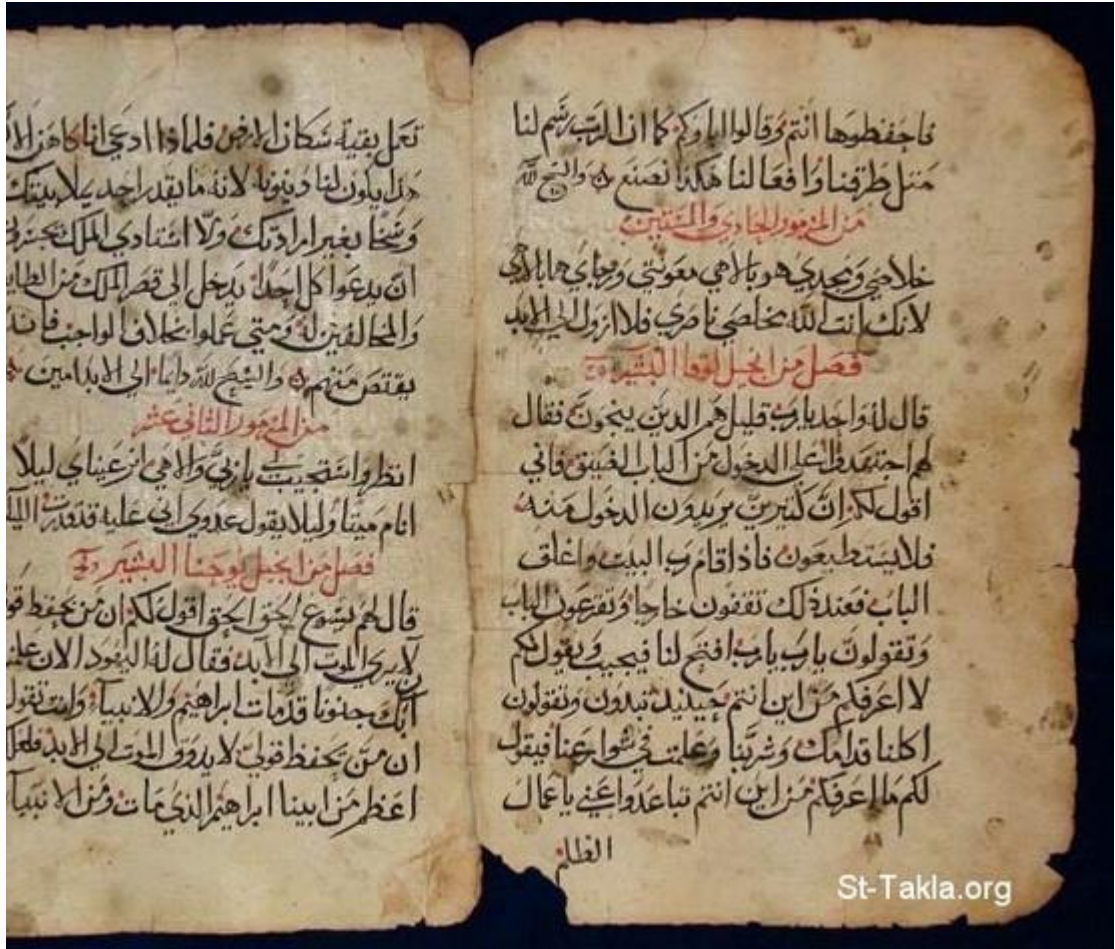 فاحفظوها انتم وقالوا اباوكم كما ان الرب رسم لنا
مثل طرقنا وافعالنا هكذا نصنع والسبح لله
من المزمور الحادي والستين
خلاصي ومجدي هو بالاهي معونتي ورجاي هما بالاهي
لانك انت الله مخلصي ناصري فلا ازول الي الابد
فصل من انجيل لوقا البشير
قال له واحد يا رب قليل هم الدين ينجون فقال
لهم اجتهدوا علي الدخول من الباب الضيق فاني
اقول لكم ان كثيرين يريدون الدخول منه
فلا يستطيعون فاذا قام رب البيت واغلق
الباب فعند ذلك تقفون خارجا وتقرعون الباب
وتقولون يا رب يا رب افتح لنا فيجيب ويقول لكم
لا اعرفكم من اين انتم حينيد تبدون وتقولون
اكلنا قدامك وشربنا وعلمت في شوارعنا فيقول
لكم ما اعرفكم من اين انتم تباعدوا عني يا عمال
الظلم
تعمل بقية سكان الارض فلماذا ادعي انا كاهن
يكون لنا دينونه لانه ما يقدر احد يملا بيتك
بغير ارادتك ولا اشتا دي الملك
ان يدعوا كل احد يدخل الى قصر الملك من
والمخالفين له ومتي عملوا بخلاف الواجب
يقتص منهم والسبح لله دايما الى الابد امين
من المزمور الثاني عشر
انظر واستجيب لي يا ربي والاهي انر عيناي ليلا
انام ميتا وليلا يقول عدوي اني عليه قد قدرت
فصل من انجيل يوحنا البشير
قال لهم يسوع الحق الحق اقول لكم ان من يحفظ
لا يري الموت الى الابد فقال له اليهود الان
انك جنونا قد مات ابراهيم والانبياء وانت تقول
ان من يحفظ قولي لا يدوق الموت الي الابد
اعظم من ابينا ابراهيم الذي مات ومن الانبيا
St-Takla.org